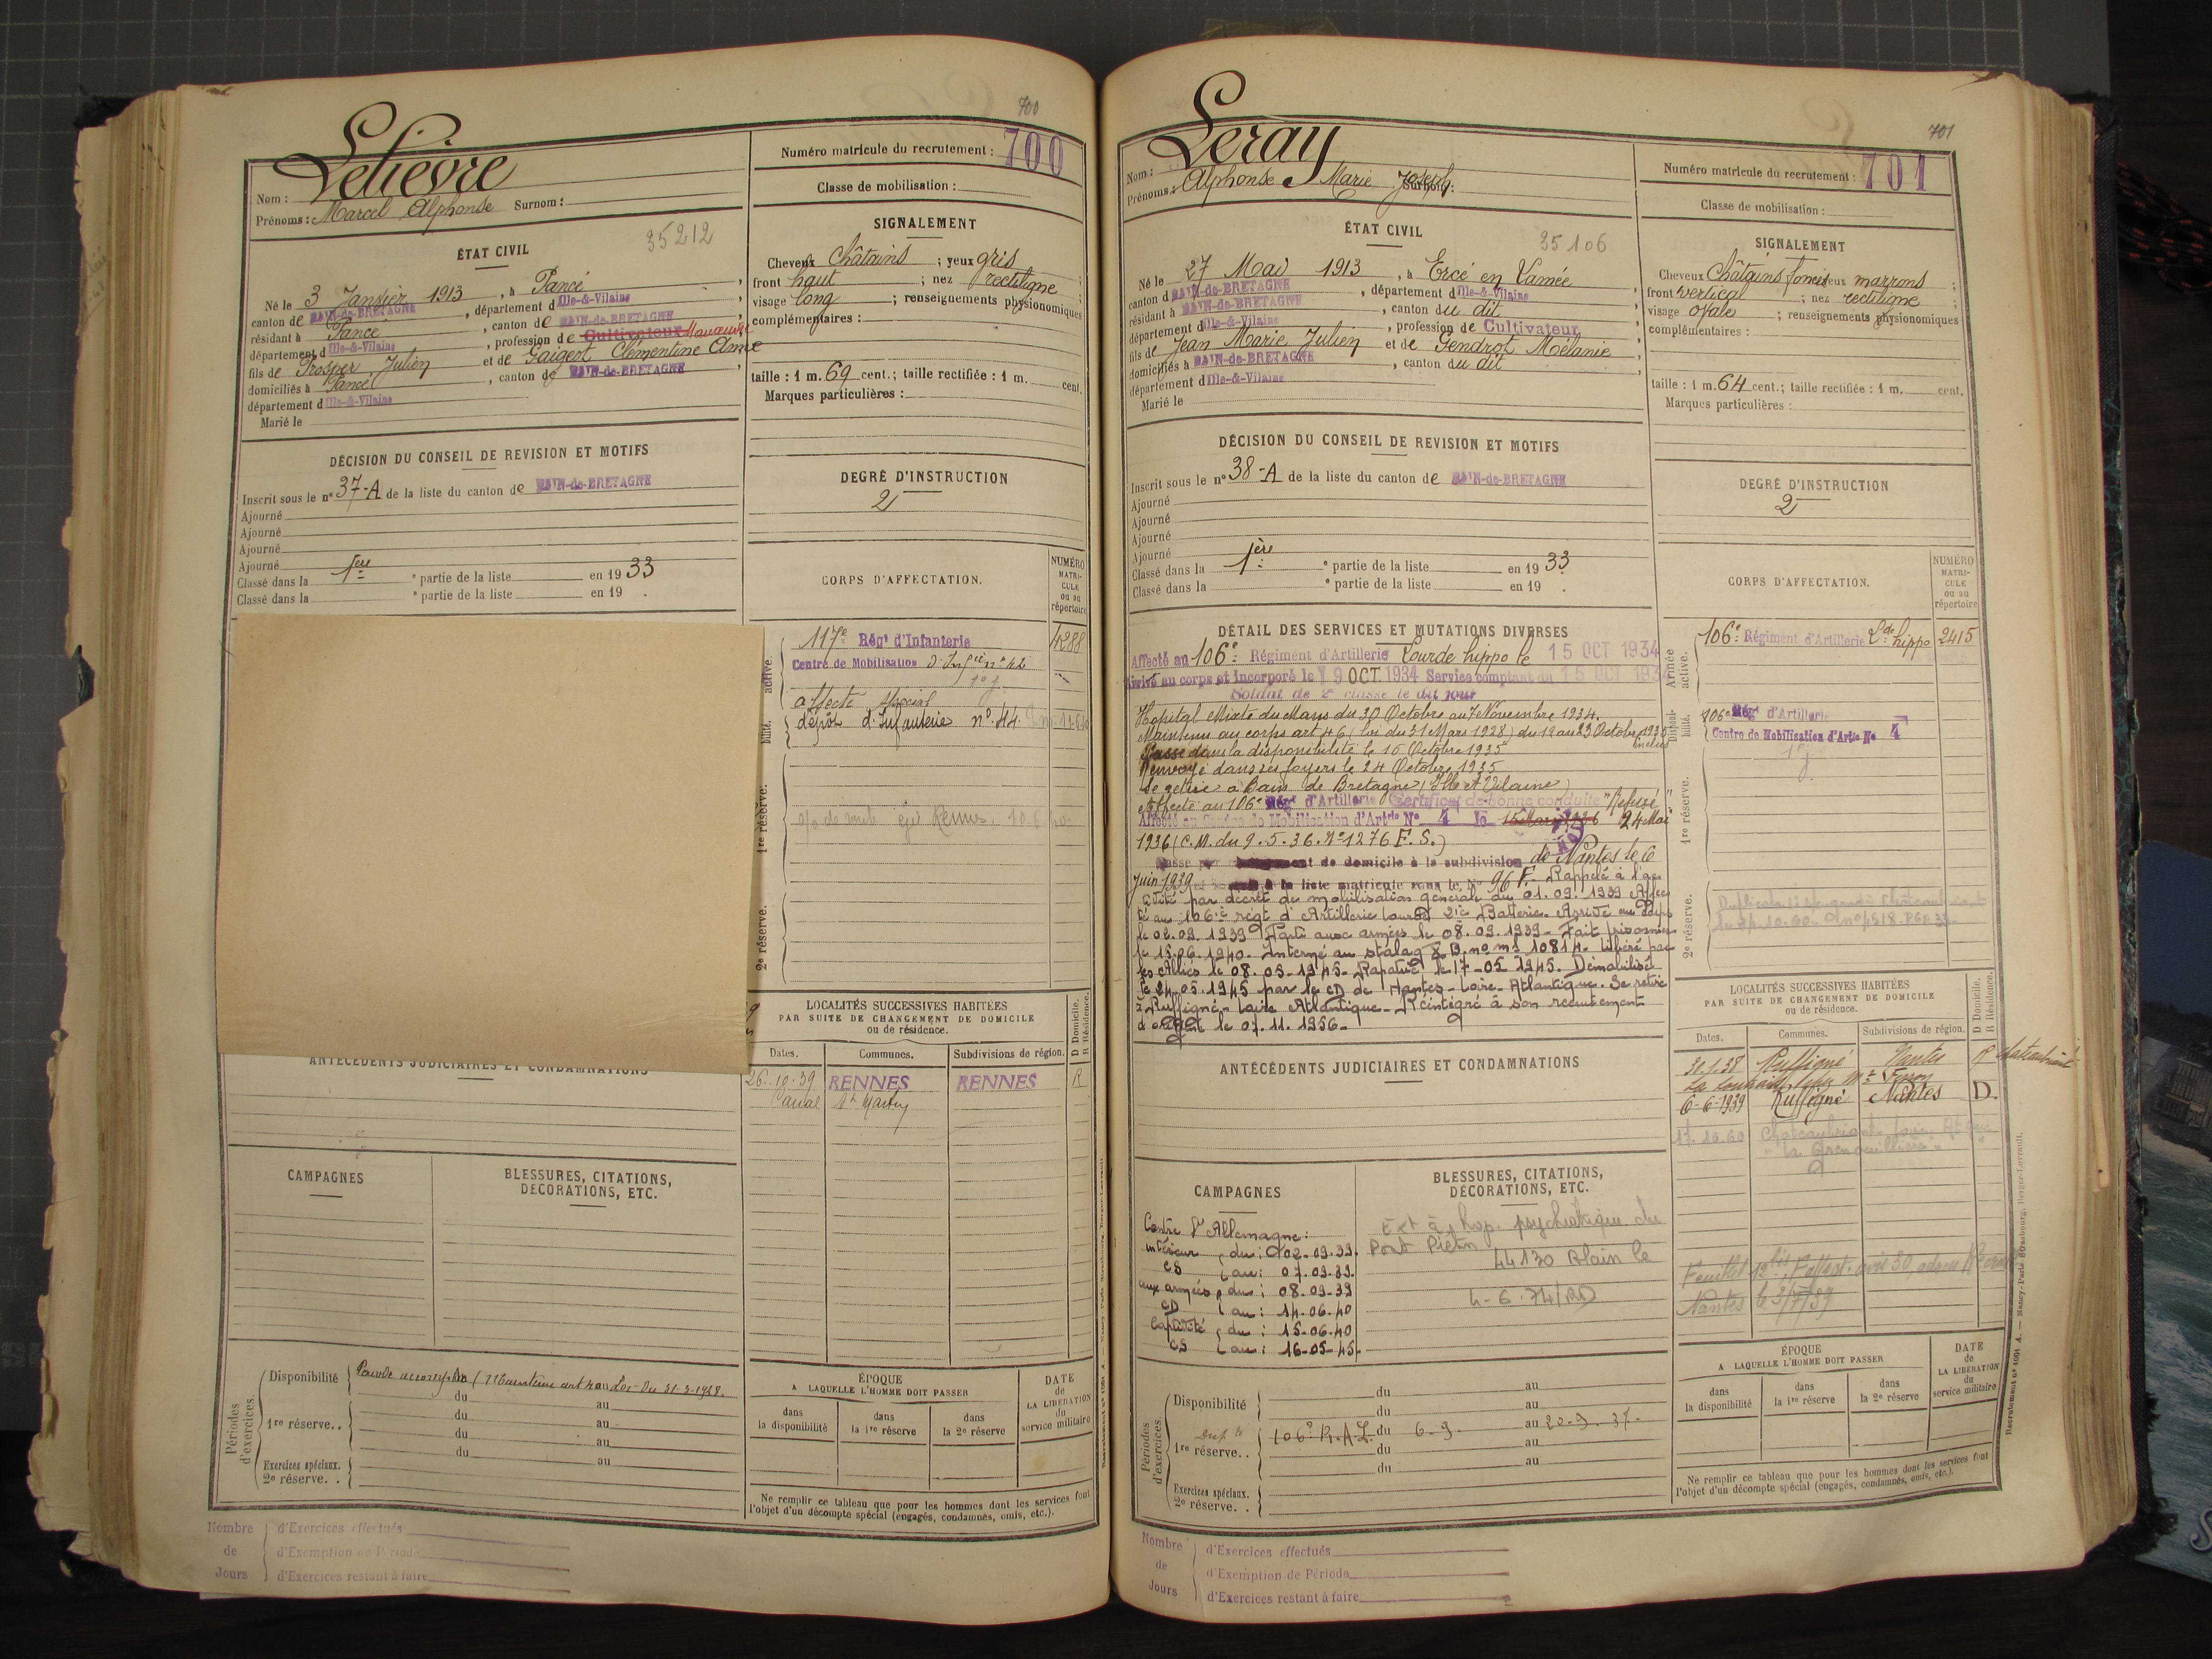 700
Lelièvre
Nom :
Prénoms : Marcel Alphonse Surnom :
Numéro matricule du recrutement : 700
Classe de mobilisation :
ÉTAT CIVIL
35212
Né le 3 Janvier 1913, à Pancé,
canton de BAIN-de-BRETAGNE, département d Ille-&-Vilaine,
résidant à Pancé, canton de BAIN-de-BRETAGNE,
département d Ille-&-Vilaine, profession de Cultivateur Manœuvre
fils de Prosper Julien et de Gaigeot Clémentine Anne
domiciliés à Pancé, canton de BAIN-de-BRETAGNE,
département d Ille-&-Vilaine
Marié le
SIGNALEMENT
Cheveux Châtains ; yeux gris ;
front haut ; nez rectiligne ;
visage long ; renseignements physionomiques
complémentaires :
taille : 1 m. 69 cent.; taille rectifiée : 1 m. cent.
Marques particulières :
DÉCISION DU CONSEIL DE REVISION ET MOTIFS
Inscrit sous le nº 37-A de la liste du canton de BAIN-de-BRETAGNE
Ajourné
Ajourné
Ajourné
Ajourné
Classé dans la 1ère e partie de la liste en 1933
Classé dans la e partie de la liste en 19 .
DEGRÉ D'INSTRUCTION
2
CORPS D'AFFECTATION.
NUMÉRO MATRI-CULE ou au répertoire
active.
117e Régt d'Infanterie 4288
Centre de Mobilisation d'Infie nº 42
affecté spécial
dépôt d'Infanterie nº 44
bilité.
1re réserve.
2e réserve.
LOCALITÉS SUCCESSIVES HABITÉES
PAR SUITE DE CHANGEMENT DE DOMICILE
ou de résidence.
D Domicile.
R Résidence.
Dates. Communes. Subdivisions de région.
26.10.39 RENNES RENNES R
Canal St Martin
ANTÉCÉDENTS JUDICIAIRES ET CONDAMNATIONS
CAMPAGNES
BLESSURES, CITATIONS,
DÉCORATIONS, ETC.
Périodes d'exercices.
Disponibilité
du au
1re réserve. .
du au
du au
du au
Exercices spéciaux.
2e réserve. .
ÉPOQUE
A LAQUELLE L'HOMME DOIT PASSER
dans la disponibilité
dans la 1re réserve
dans la 2e réserve
DATE de LA LIBÉRATION du service militaire
Ne remplir ce tableau que pour les hommes dont les services font
l'objet d'un décompte spécial (engagés, condamnés, omis, etc.).
Nombre de Jours
d'Exercices effectués
d'Exemption de Période
d'Exercices restant à faire
701
Leray
Nom :
Prénoms : Alphonse Marie Joseph Surnom :
Numéro matricule du recrutement : 701
Classe de mobilisation :
ÉTAT CIVIL
35106
Né le 27 Mai 1913, à Ercé en Lamée
canton d BAIN-de-BRETAGNE, département d Ille-&-Vilaine
résidant à BAIN-de-BRETAGNE, canton du dit
département d Ille-&-Vilaine, profession de Cultivateur
fils de Jean Marie Julien et de Gendrot Mélanie
domiciliés à BAIN-de-BRETAGNE, canton du dit
département d Ille-&-Vilaine
Marié le
SIGNALEMENT
Cheveux Châtains foncés yeux marrons ;
front vertical ; nez rectiligne ;
visage ovale ; renseignements physionomiques
complémentaires :
taille : 1 m. 64 cent.; taille rectifiée : 1 m. cent.
Marques particulières :
DÉCISION DU CONSEIL DE REVISION ET MOTIFS
Inscrit sous le nº 38-A de la liste du canton de BAIN-de-BRETAGNE
Ajourné
Ajourné
Ajourné
Ajourné
Classé dans la 1ère e partie de la liste en 1933
Classé dans la e partie de la liste en 19 .
DEGRÉ D'INSTRUCTION
2
DÉTAIL DES SERVICES ET MUTATIONS DIVERSES
Affecté au 106e Régiment d'Artillerie Lourde hippo le 15 OCT 1934
Arrivé au corps et incorporé le 19 OCT. 1934 Service comptant du 15 OCT 1934
Soldat de 2e classe le dit jour
Hopital Mixte du Mans du 30 Octobre au 7 Novembre 1934.
Maintenu au corps art 46 (loi du 31 Mars 1928) du 19 au 23 Octobre 1935 inclus
Passé dans la disponibilité le 16 Octobre 1935
Renvoyé dans ses foyers le 24 Octobre 1935
Se retire à Bain de Bretagne (Ille et Vilaine)
Affecté au 106e Régt d'Artillerie Certificat de bonne conduite "Refusé"
Affecté au Centre de Mobilisation d'Artrie Nº 4 le 15 Mars 1936 24 Mai
1936 (C.M. du 9.5.36. Nº 1276 F.S.)
Passé par changement de domicile à la subdivision de Nantes le 6
Juin 1939 à la liste matricule sous le Nº 96 F. Rappelé à l'ac
tivité par décret de mobilisation générale du 01.09.1939 Affec
té au 106ie régt d'Artillerie lourde 21ie Batterie. Arrivé au corps
le 02.09.1939 Parti aux armées le 08.09.1939 - Fait prisonnier
le 15.06.1940. Interné au stalag X B. no mle 10814. Libéré par
les Alliés le 08.05.1945. Rapatrié le 17-05 1945. Démobilisé
le 24.05.1945 par le CD de Nantes - Loire Atlantique. Se retire
à Ruffigné - Loire Atlantique - Réintégré à son recrutement
d'origine le 07.11.1956 -
CORPS D'AFFECTATION.
NUMÉRO MATRI-CULE ou au répertoire
Armée active.
106e Régiment d'Artillerie Lde hippo 2415
Disponi-bilité.
106e Régt d'Artillerie
Centre de Mobilisation d'Artie Nº 4
1re réserve.
2e réserve.
LOCALITÉS SUCCESSIVES HABITÉES
PAR SUITE DE CHANGEMENT DE DOMICILE
ou de résidence.
D Domicile.
R Résidence.
Dates. Communes. Subdivisions de région.
31.1.38 Ruffigné Nantes R Chateaubriant
6-6-1939 Ruffigné Nantes D.
17.10.60 Chateaubriant Loire Atque
"La Grenouillère"
Nantes le 3/7/39
ANTÉCÉDENTS JUDICIAIRES ET CONDAMNATIONS
CAMPAGNES
Contre l'Allemagne :
intérieur du : 02-09.39.
CS au : 07.09.39.
aux armées du : 08.09.39
CD au : 14.06.40
Captivité du : 15.06.40
CS au : 16-05-45.
BLESSURES, CITATIONS,
DÉCORATIONS, ETC.
Ext à hop. psychiatrique du
Pont Piétin
44130 Blain le
4-6-74/RD
Périodes d'exercices.
Disponibilité
du au
du au
1re réserve. .
106e R.A.L. du 6-9. au 20-9-37-
du au
du au
Exercices spéciaux.
2e réserve. .
ÉPOQUE
A LAQUELLE L'HOMME DOIT PASSER
dans la disponibilité
dans la 1re réserve
dans la 2e réserve
DATE de LA LIBÉRATION du service militaire
Ne remplir ce tableau que pour les hommes dont les services font
l'objet d'un décompte spécial (engagés, condamnés, omis, etc.).
Nombre de Jours
d'Exercices effectués
d'Exemption de Période
d'Exercices restant à faire